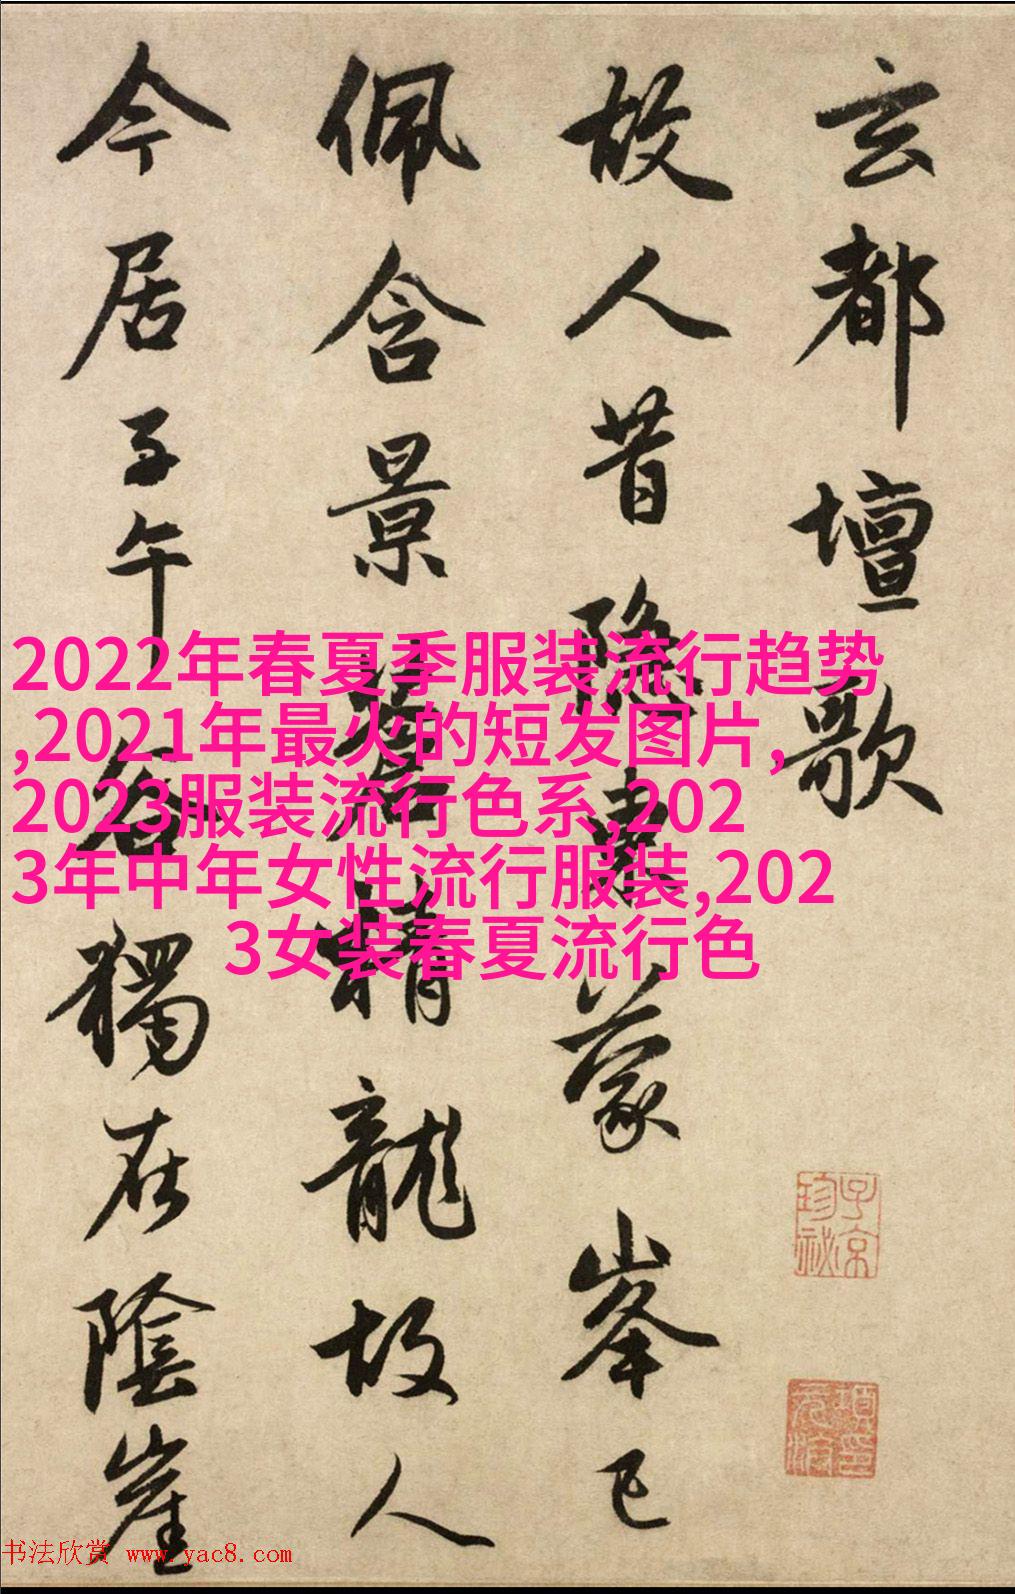 玄都壇歌
故人昔隱東蒙峯已
佩含景蒼精龍故人
今居子午谷獨在陰崖
2022年春夏季服装流行趋势
,2021年最火的短发图片,
2023服装流行色系,202
3年中年女性流行服装,202
3女装春夏流行色
子京
珍祕
书法欣赏 www.yac8.com